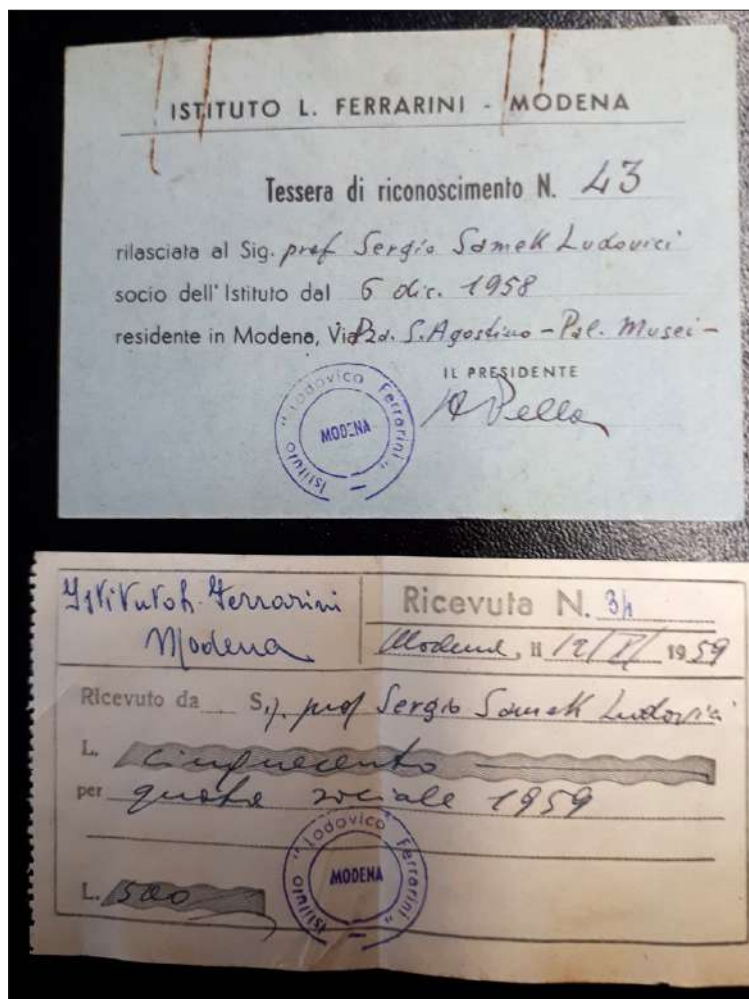 ISTITUTO L. FERRARINI - MODENA
Tessera di riconoscimento N. 43
rilasciata al Sig. prof Sergio Samek Ludovici
socio dell'Istituto dal 6 dic. 1958
residente in Modena, Via Pza. S. Agostino - Pal. Musei -
IL PRESIDENTE
Istituto "Lodovico Ferrarini"
MODENA
Istituto L. Ferrarini
Modena
Ricevuta N. 34
Modena, li 12/ / 1959
Ricevuto da S.g. prof Sergio Samek Ludovici
L. cinquecento
per quota sociale 1959
L. 500
Istituto "Lodovico Ferrarini"
MODENA